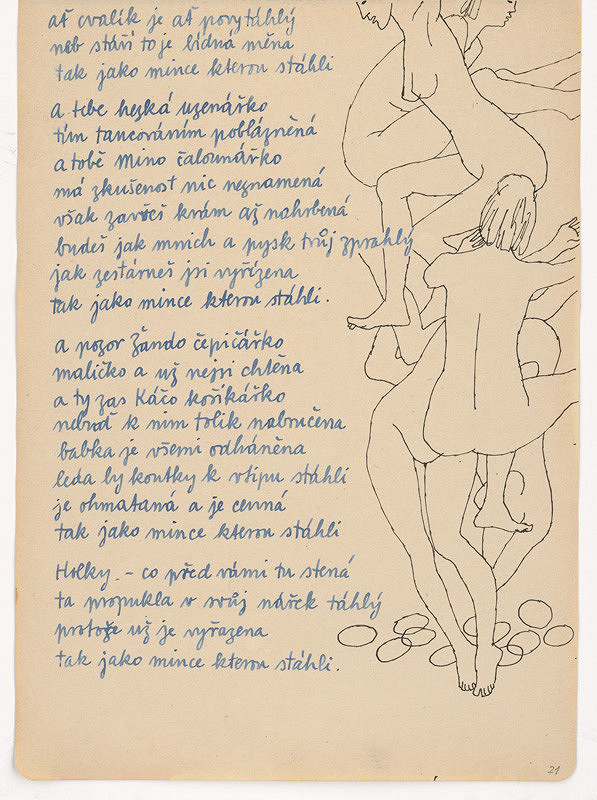 ať cvalík je ať povytáhlý
neb stáří to je bídná měna
tak jako mince kterou stáhli
a tebe hezká uzenářko
tím tancováním poblázněná
a tobě Mino čalounářko
má zkušenost nic neznamená
však zavřeš krám až nahrbená
budeš jak mnich a pysk tvůj zprahlý
jak zestárneš jsi vyřízena
tak jako mince kterou stáhli.
a pozor Žando čepičářko
maličko a už nejsi chtěna
a ty zas Káčo košíkářko
nebuď k nim tolik nabručena
babka je všemi odháněna
leda by koutky k vtipu stáhli
je ohmataná a je cenná
tak jako mince kterou stáhli
Holky. – co před vámi tu stená
ta propukla v svůj nářek táhlý
protože už je vyřazena
tak jako mince kterou stáhli.
21